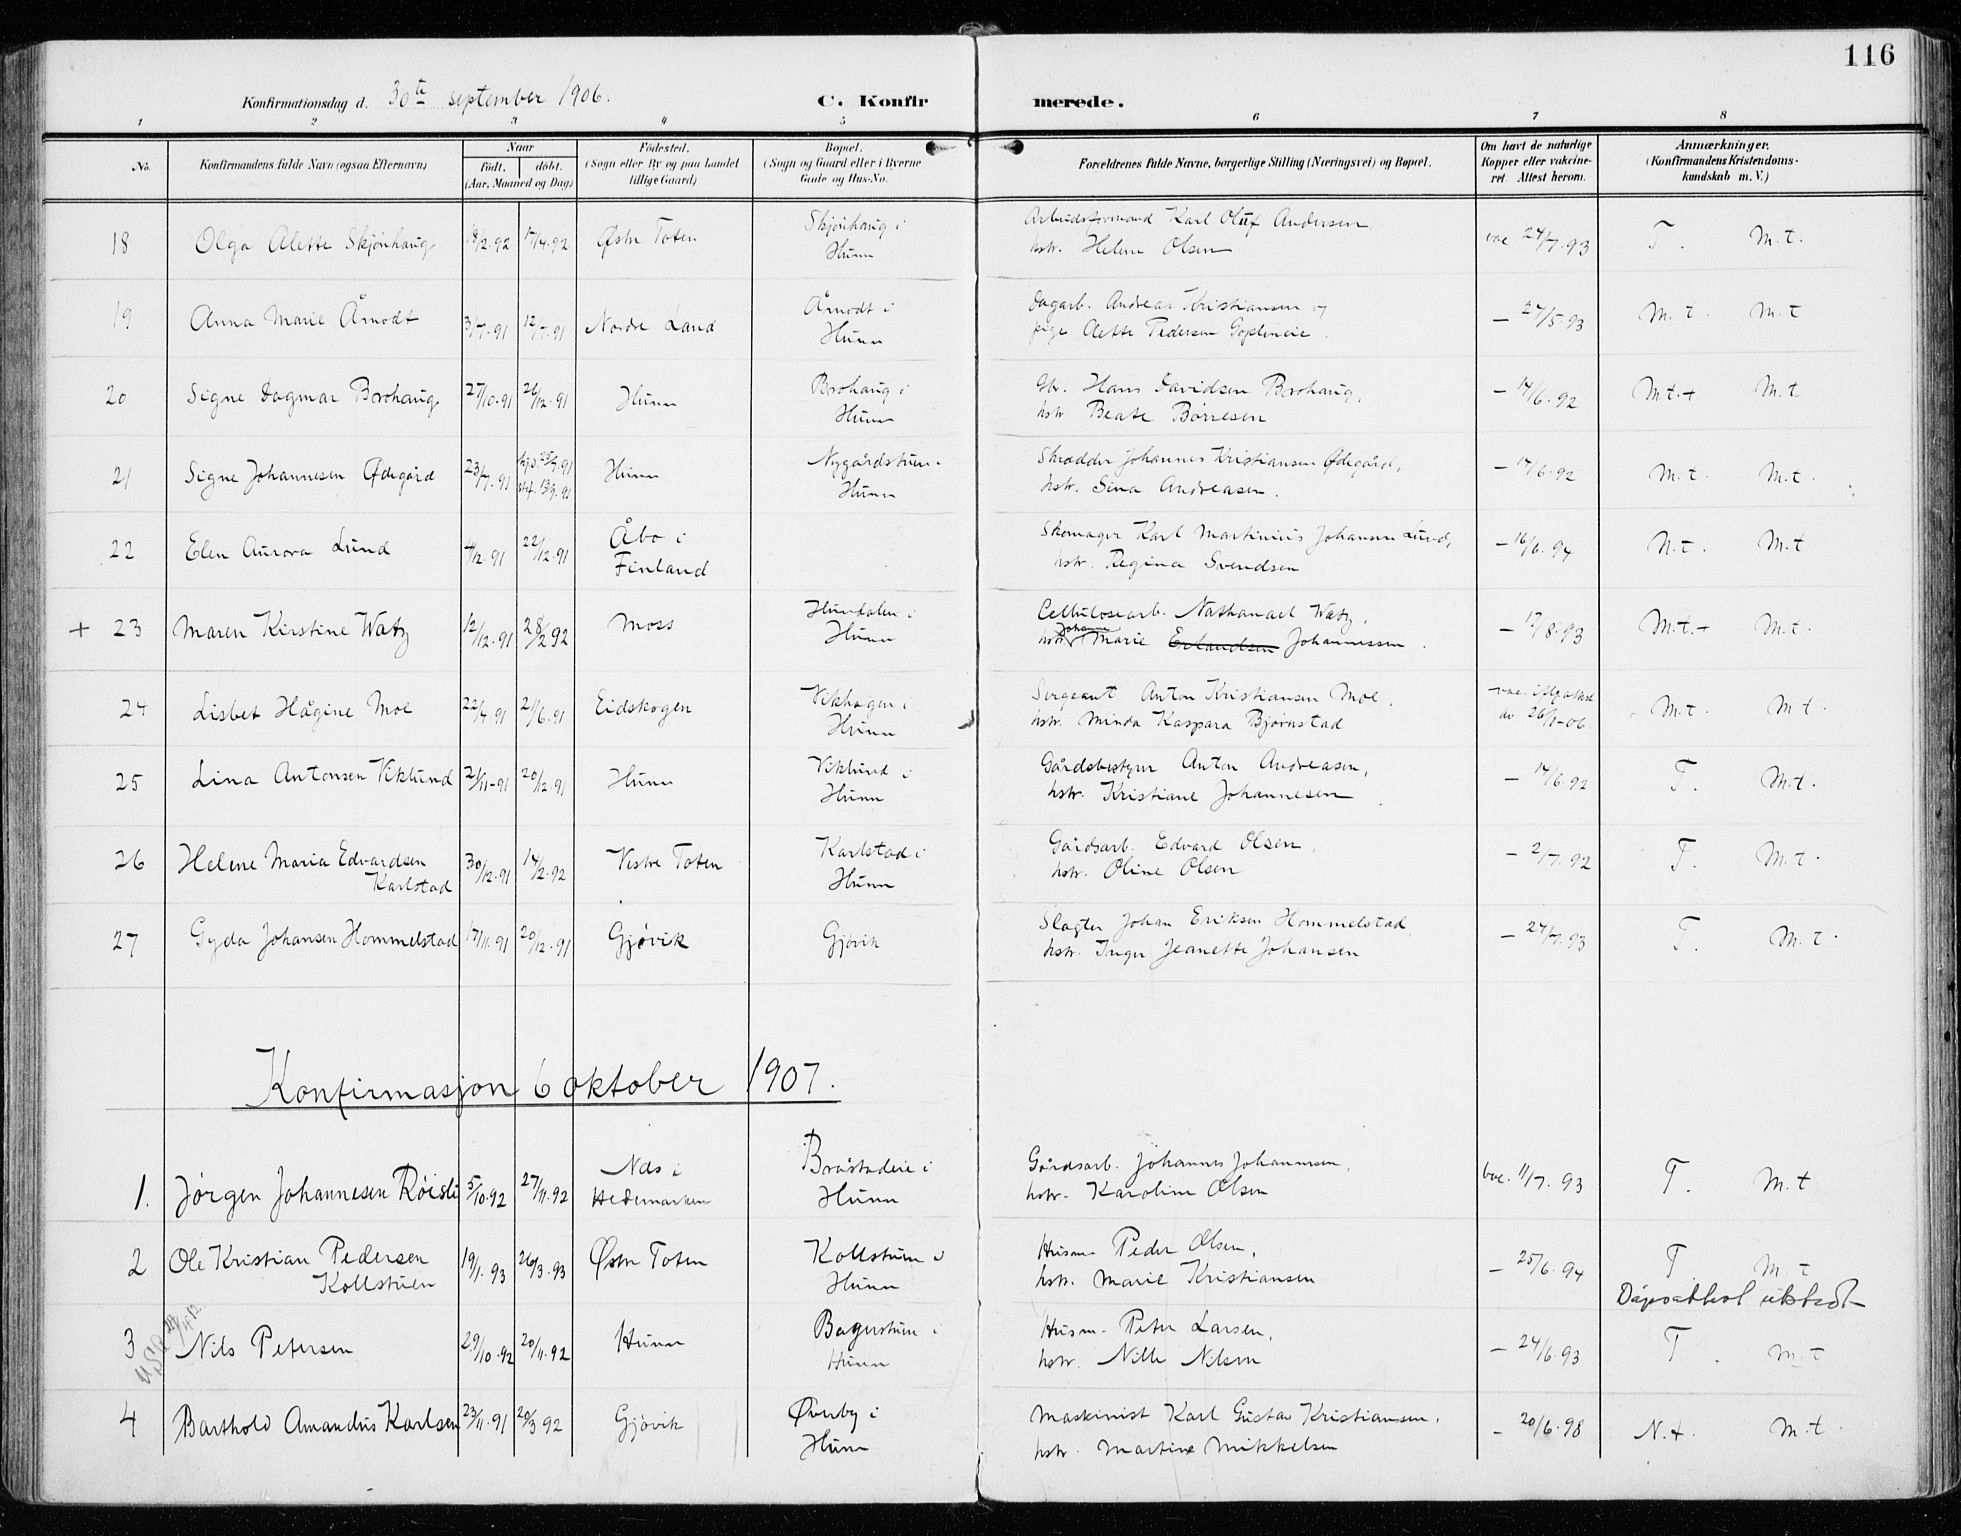 116
Konfirmationsdag d. 30te september 1906.
C. Konfirmerede.
1 2 3 4 5 6 7 8
No.
Konfirmandens fulde Navn (ogsaa Efternavn)
Naar
født. døbt.
(Aar, Maaned og Dag)
Fødested.
(Sogn eller By og paa Landet
tillige Gaard)
Bopæl.
(Sogn og Gaard eller i Byerne
Gade og Hus-No.
Forældrenes fulde Navne, borgerlige Stilling (Næringsvei) og Bopæl.
Om havt de naturlige
Kopper eller vakcine-
ret. Attest herom.
Anmærkninger.
(Konfirmandens Kristendoms-
kundskab m. V.)
18 Olga Alette Skjønhaug 18/2.92 17/4.92 Østre Toten Skjønhaug i
Hunn
Arbeidsformand Karl Oluf Andersen
hstr. Helene Olsen
vac 24/7.93 T. M.t.
19 Anna Marie Åmodt 3/7.91 12/7.91 Nordre Land Åmodt i
Hunn
Dagarb. Andreas Kristiansen og
pige Olette Pedersen
— 27/5.93 M.t. M.t
20 Signe Dagmar Brohaug 27/10.91 26/12.91 Hunn Brohaug i
Hunn
Gbr. Hans Davidsen Brohaug,
hstr Beate Børresen
— 14/6.92 M.t.+ M.t
21 Signe Johannesen Ødegård 23/7.91 Hunn Nygårdstuen
Hunn
Skrædder Johannes Kristiansen Ødegård,
hstr. Sina Andreasen.
— 14/6.92 M.t. M.t.
22 Elen Aurora Lund 4/12.91 22/12.91 Åbo i
Finland
Skomager Karl Martinius Johansen Lund,
hstr. Regina Svendsen
— 16/6.94 N.t. M.t
+ 23 Maren Kirstine Watz 12/12.91 28/2 92 Moss Hundalen i
Hunn
Cellulosearb. Nathanael Watz,
hstr. Johanne Marie Erlandsen Johannessen.
— 17/8.93 M.t.+ M.t.
24 Lisbet Hågine Moe 22/4.91 21/6.91 Eidskogen Vikhagen i
Hunn
Sergeant Anton Kristiansen Moe,
hstr. Minda Kaspara Bjørnstad
vac. ifølge attest
av 26/1-06 M.t. M.t.
25 Lina Antonsen Viklund 21/11-91 20/12.91 Hunn Viklund i
Hunn
Gårdsbestyrer Anton Andreasen,
hstr. Kristiane Johannesen
— 14/6.92 T. M.t.
26 Helene Maria Edvardsen
Karlstad 30/12.91 14/2.92 Vestre Toten Karlstad i
Hunn
Gårdsarb. Edvard Olsen,
hstr. Oline Olsen
— 2/7.92 T. M.t.
27 Gyda Johansen Hommelstad 17/11.91 20/12.91 Gjøvik Gjøvik
Slagter Johan Eriksen Hommelstad
hstr. Inger Jeanette Johansen
— 24/7.93 T. M.t.
Konfirmasjon 6 oktober 1907.
1. Jørgen Johannesen Røisli 5/10.92 27/11.92 Nes i
Hedemarken Bråstadeie i
Hunn
Gårdsarb. Johannes Johannesen,
hstr. Karoline Olsen
vac. 11/7.93 T. M.t
2 Ole Kristian Pedersen
Kollstuen 19/1.93 26/3.93 Østre Toten Kollstuen i
Hunn
Husm. Peder Olsen,
hstr. Marie Kristiansen
— 25/6.94 T M.t
Dåpsattest utstedt
3 Nils Petersen 29/10.92 20/11.92 Hunn Bagerstuen i
Hunn
Husm. Peter Larsen,
hstr. Nille Nilsen
— 24/6.93 T. M.t
4 Barthold Amandus Karlsen 23/11.91 20/3 92 Gjøvik Øverby i
Hunn
Maskinist Karl Gustav Kristiansen,
hstr. Martine Mikkelsen
— 20/6.98 N.t. M.t.